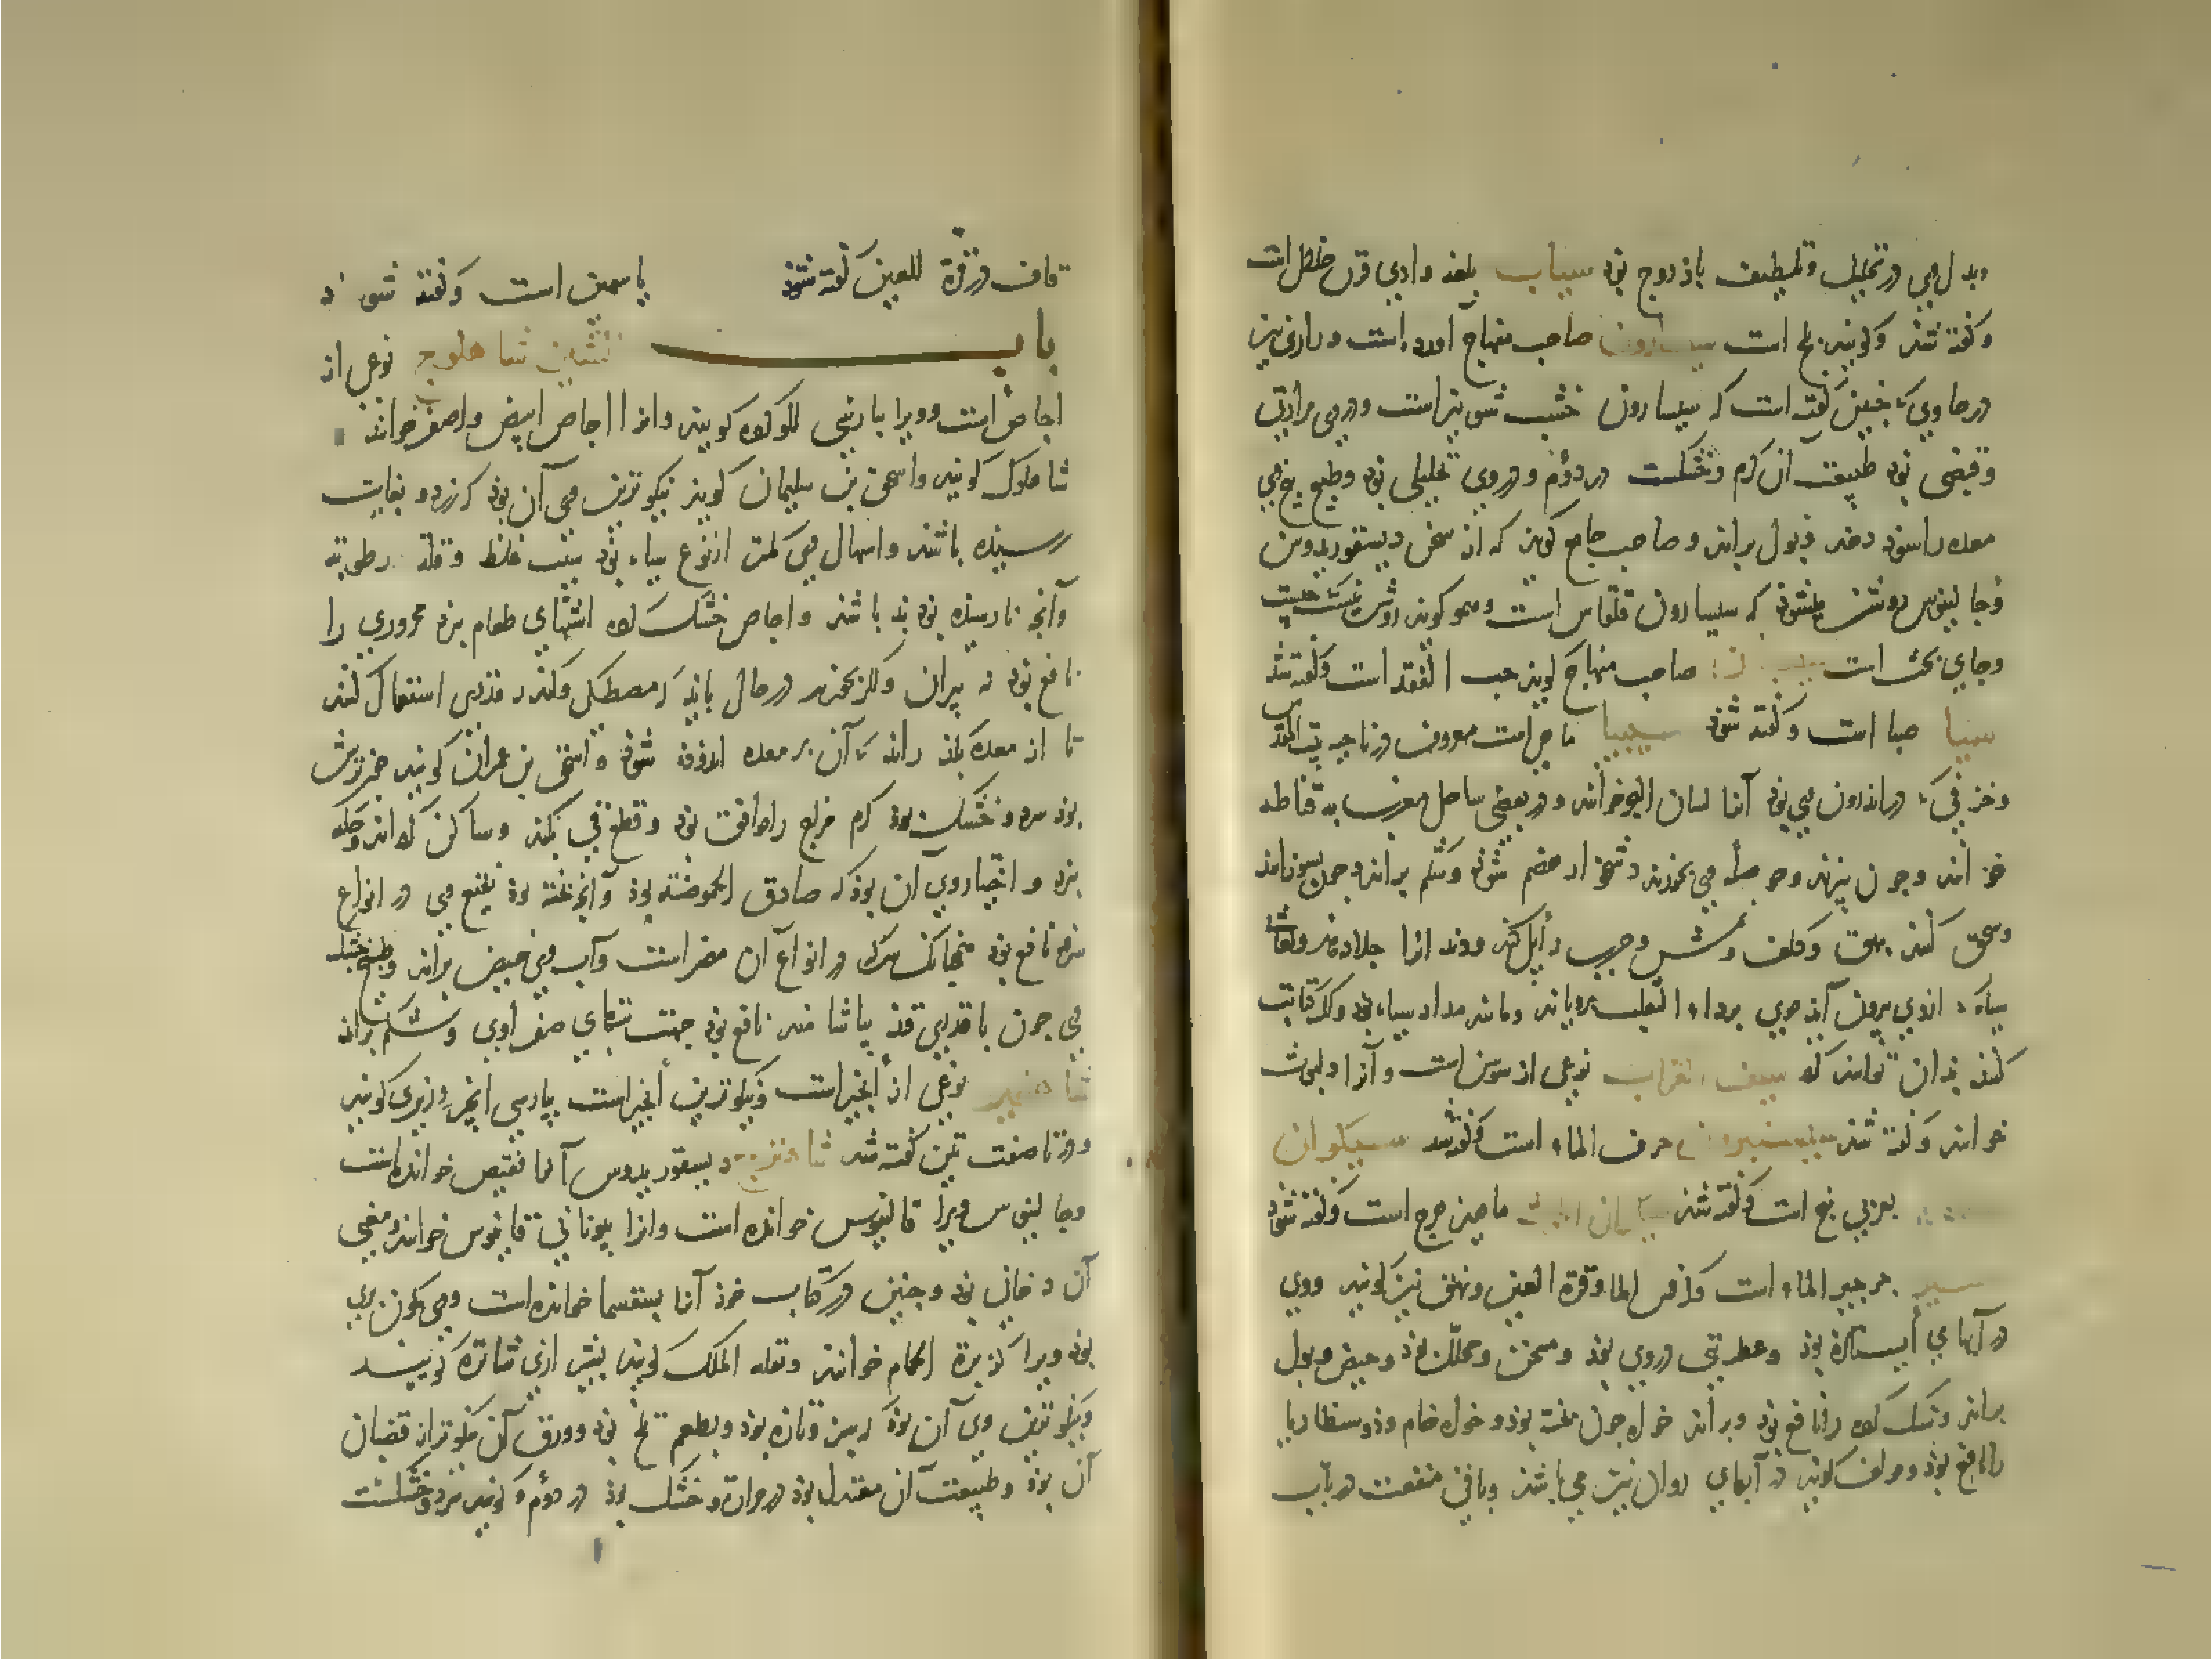 وبدل وی در تحلیل و تلطیف باذروج بود سیاب بلغه وادی قری خلال است
و گفته شد و گویند بلح است سیسارون صاحب منهاج آورده است و رازی نیز
در حاوی چنین گفته است که سیسارون خشب شونیز است و در وی مرارتی
و قبضی بود طبیعت آن گرم و خشکست در دوم و در وی تحلیلی بود و طبیخ بیخ وی
معده را سود دهد و بول براند و صاحب جامع گوید که از سخن دیسقوریدوس
و جالینوس روشن میشود که سیسارون قلقاس است و هم گوید روشن نیست چیست
و جای بحث است صاحب منهاج گوید حب الفقد است و گفته شد
سیبا صبا است و گفته شود سیبیا ماهی است معروف در ناحیه بیت المقدس
و خزفی که در اندرون وی بود آنرا لسان البحر خوانند و در بعضی ساحل مغرب به قناطه
خوانند و چون بپزند و جرم وی بخورند دشخوار هضم شود و شکم براند و چون بسوزانند
و سحق کنند بهق و کلف و نمش و جرب زایل کند و دندانرا جلا دهد
سیاه که از وی بیرون آید موی بر داء الثعلب برویاند و مانند مداد سیاه بود و اگر کتابت
کنند بدان توانند کرد سیف الغراب نوعی از سوسن است و آنرا دلبوث
خوانند و گفته شد حرف الماء است و گفته شد سیکوان
بعربی بنج است و گفته شد ماهیزهرج است و گفته شود
سیر جرجیر الماء است و کرفس الماء و قرة العین و نهق نیز گویند و وی
در آبهای ایستاده بود و عطریتی در وی بود و مسخن و محلل بود و حیض و بول
براند و سنگ گرده را نافع بود و بریزاند خواه چون پخته بود و خواه خام و ذوسنطاریا
را نافع بود و مولف گوید در آبهای روان نیز می‌باشد و باقی منفعت در باب
قاف در قرة العین گفته شود یاسمین است و گفته شود
باب الشین شاهلوج نوعی از
اجاص است و ویرا پارسی آلوکوده گویند و آنرا اجاص ابیض و اصفر خوانند
شاهلوک گویند و اسحق بن سلیمان گوید نیکوترین وی آن بود که زرد و بغایت
رسیده باشد و اسهال وی کمتر از نوع سیاه بود بسبب غلظ و قلة رطوبة
و آنچه نارسیده بود بد باشد و اجاص خشک کرده اشتهای طعام ببرد محروری را
نافع بود نه پیران و اگر بخورند در حال باید که مصطکی و کندر قدری استعمال کنند
تا از معده بگذراند که آن بر معده افزوده شود و اسحق بن عمران گوید
بود سرد و خشک بود گرم مزاج را موافق بود و قطع قی بکند و ساکن گرداند و حکه
ببرد و اختیار وی آن بود که صادق الحموضة بود و آنچه پخته بود نقیع وی در انواع
سرفه نافع بود همچنانکه سرکه در انواع آن مضر است و آب وی حیض براند و طبیخ خشک
وی چون با قدری قند بیاشامند نافع بود جهت تبهای صفراوی و شکم براند
شاهنجیر نوعی از انجیر است و نیکوترین انجیر است بپارسی انجیر وزیری گویند
و در تا صفت تین گفته شد شاهترج دیسقوریدوس آنرا قفنیص خوانده است
و جالینوس ویرا قاپنوس خوانده است و آنرا یونانی قاپنوس خوانند و معنی
آن دخانی بود و حنین در کتاب خود آنرا بسقسما خوانده است و وی
بود ویرا کزبرة الحمام خوانند و بقله الملک گویند بشیرازی شاتره گویند
و نیکوترین وی آن بود که سبز و تازه بود و بطعم تلخ بود و ورق آن نیکوتر از قضبان
آن بود و طبیعت آن معتدل بود در حرارة و خشک بود در دوم و گویند سرد و خشکست